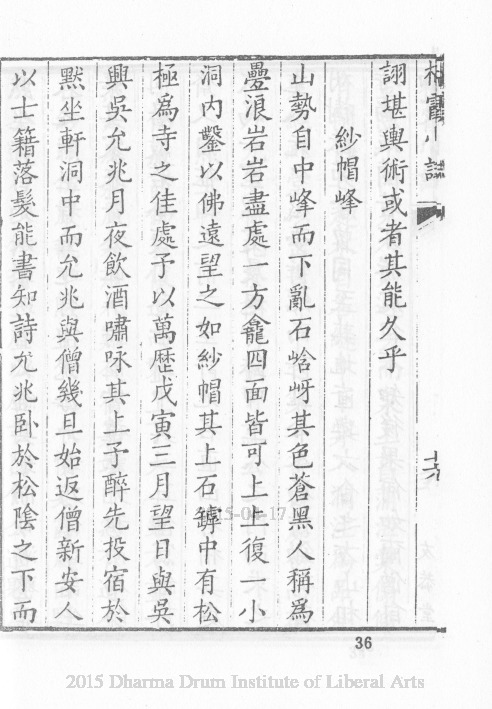 栖霞小誌
十六
詡堪輿術或者其能久乎
紗帽峰
山勢自中峰而下亂石峆岈其色蒼黑人稱爲
疊浪岩岩盡處一方龕四面皆可上上復一小
洞内鑿以佛遠望之如紗帽其上石罅中有松
極爲寺之佳處予以萬歷戊寅三月望日與吳
興吳允兆月夜飲酒嘯咏其上予醉先投宿於
黙坐軒洞中而允兆與僧幾旦始返僧新安人
以士籍落髮能書知詩允兆卧於松陰之下而
36
2015 Dharma Drum Institute of Liberal Arts